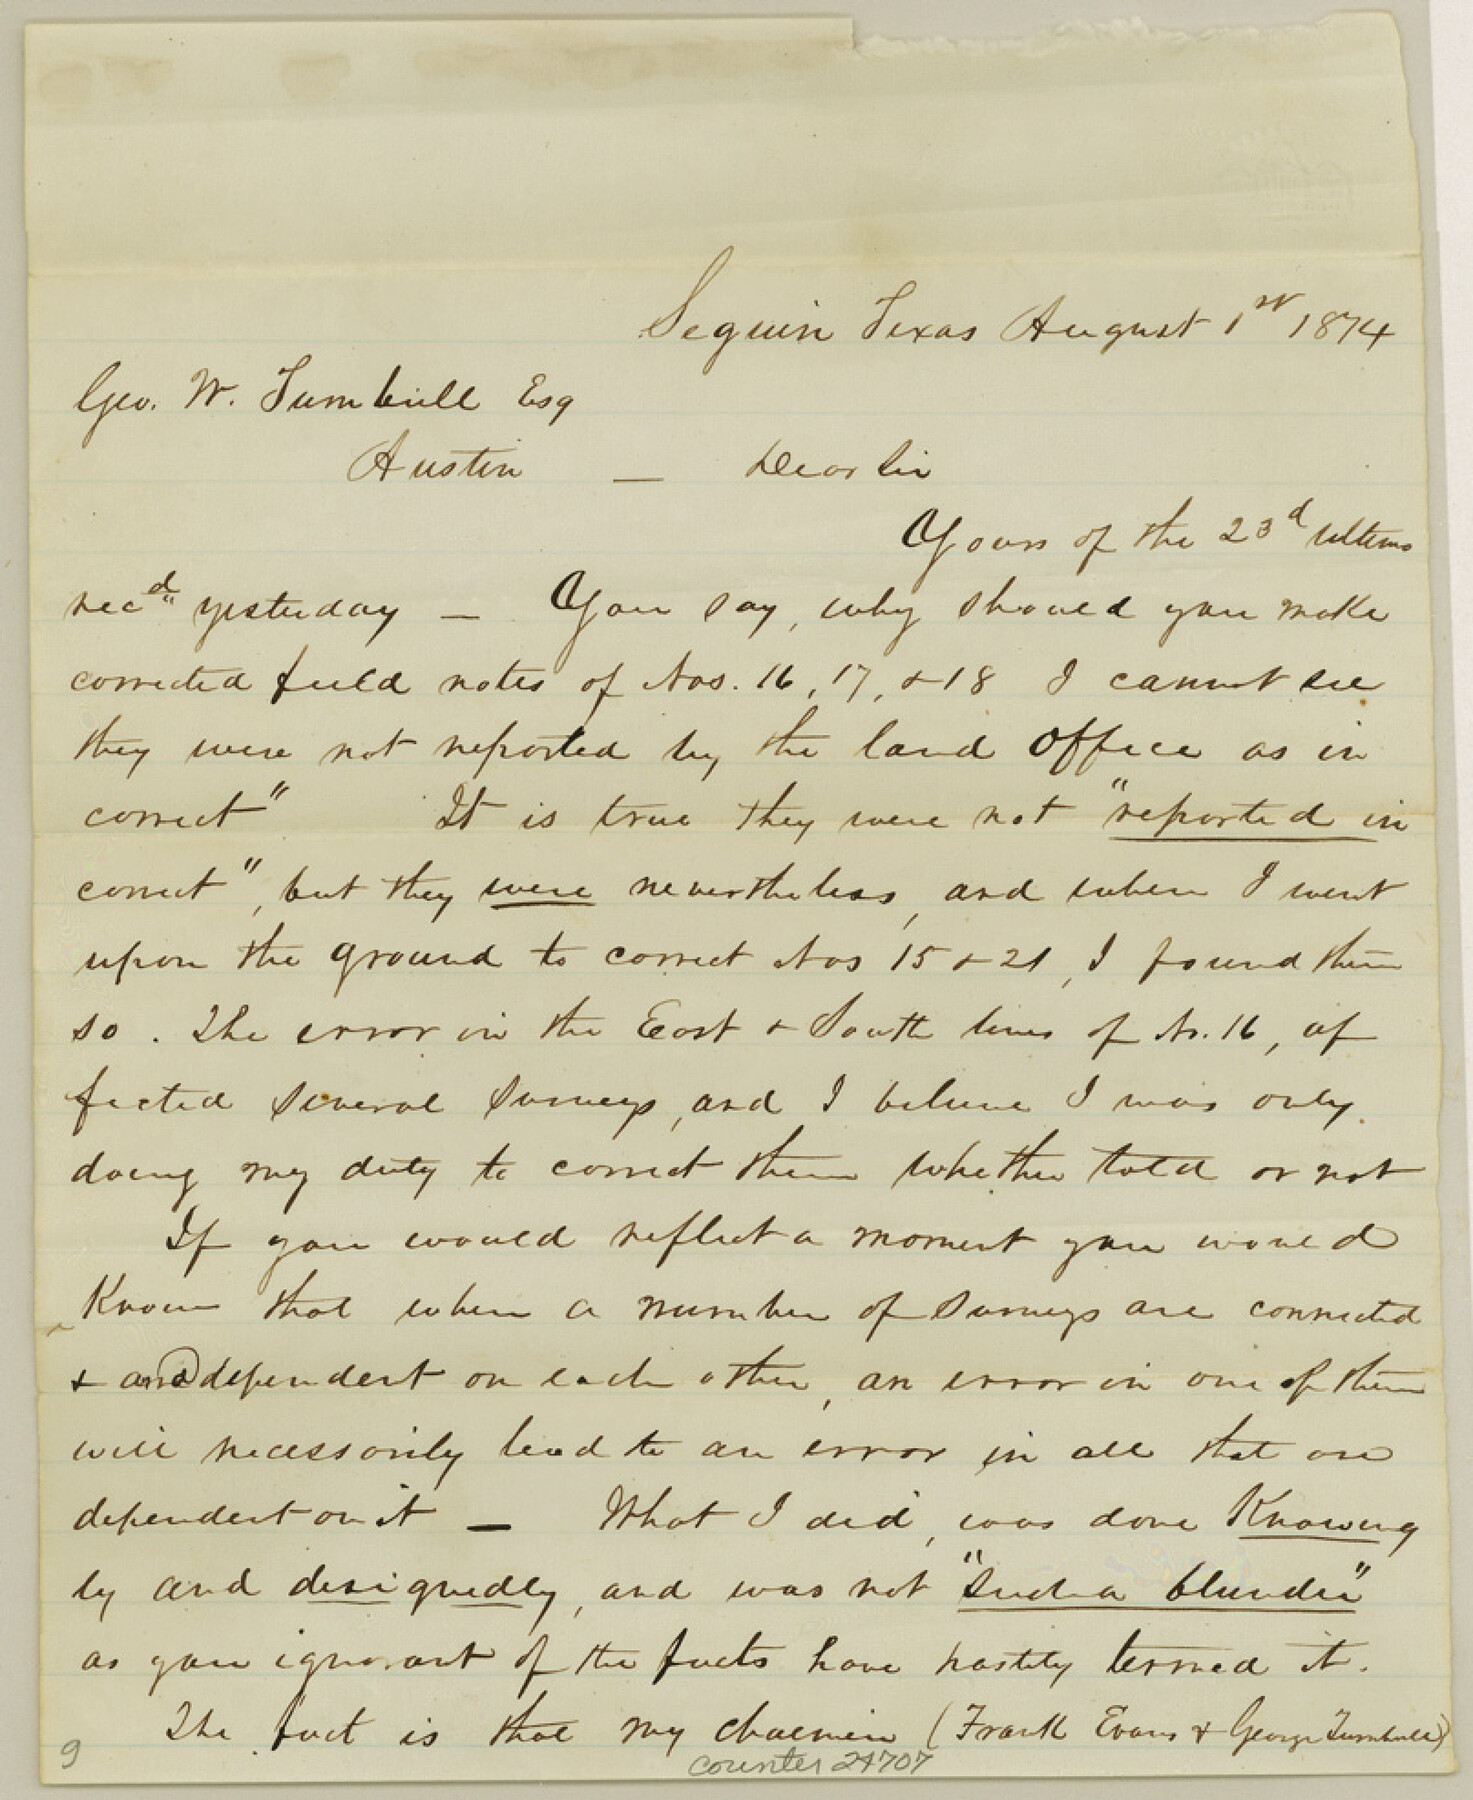 Seguin Texas August 1st 1874
Geo. W. Turnbull Esq
Austin — Dear Sir
Yours of the 23d ultimo
recd" yesterday — You say, why should you make
corrected field notes of Nos. 16, 17, & 18 I cannot see
they were not reported by the land office as in
correct" It is true they were not "reported in
correct", but they were nevertheless, and when I went
upon the ground to correct Nos 15 & 21, I found them
so. The error in the East & South lines of No. 16, af
fected several surveys, and I believe I was only
doing my duty to correct them whether told or not
If you would reflect a moment you would
Know that when a number of surveys are connected
& and dependent on each other, an error in one of them
will necessarily lead to an error in all that are
dependent on it — What I did, was done Knowing
ly and designedly, and was not "such a blunder"
as you ignorant of the facts have hastily termed it.
The fact is that my chainmen (Frank Evans & George Turnbull)
9
counter 24707